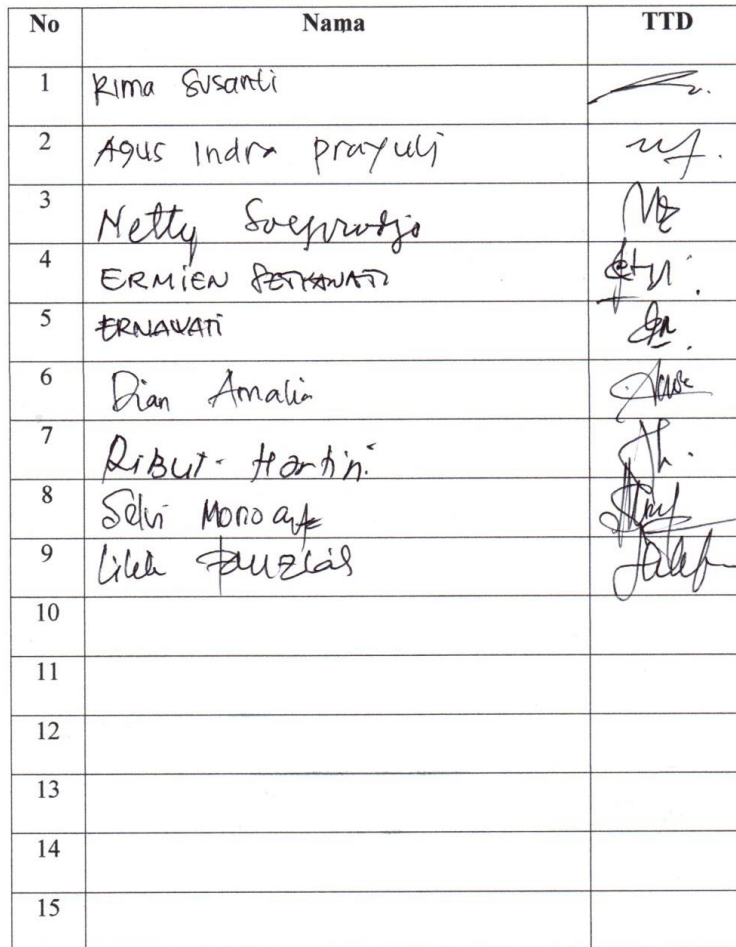 No Nama TTD
1 Rima Susanti
2 Agus Indra Prayuli
3 Netty Soeprodjo
4 ERMIEN SETYAWATI
5 ERNAWATI
6 Dian Amalia
7 RIBUT Hartini
8 Selvi
9 Lilik
10
11
12
13
14
15